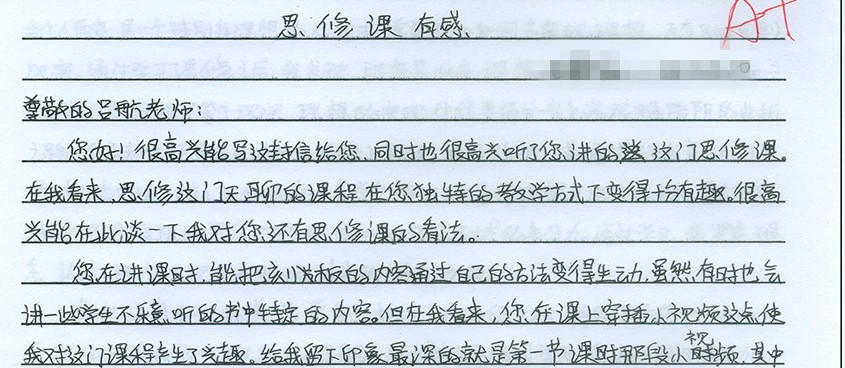 思修课有感
A+
尊敬的吕航老师：
您好！很高兴能写这封信给您，同时也很高兴听了您讲的这门思修课。
在我看来，思修这门无聊的课程在您独特的教学方式下变得十分有趣。很高
兴能在此谈一下我对您还有思修课的看法。
您在讲课时，能把刻板的内容通过自己的方法变得生动，虽然有时也会
讲一些学生不乐意听的书中特定的内容。但在我看来，您在课上穿插小视频这点使
我对这门课程产生了兴趣。给我留下印象最深的就是第一节课时那段小视频，其中